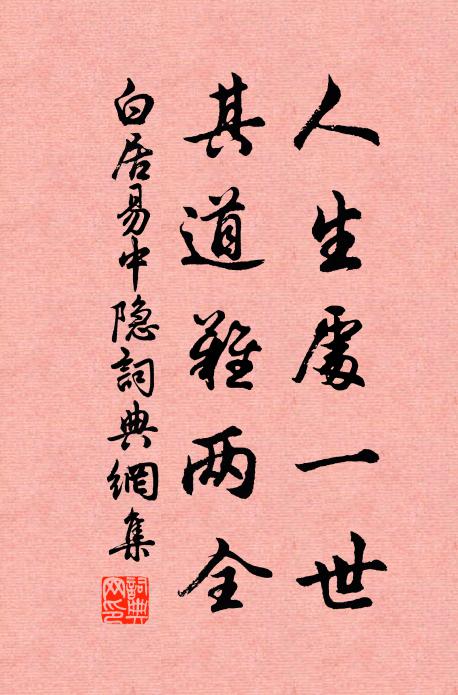 人生處一世
其道難两全
白居易中隐詞典網集
詞典网印